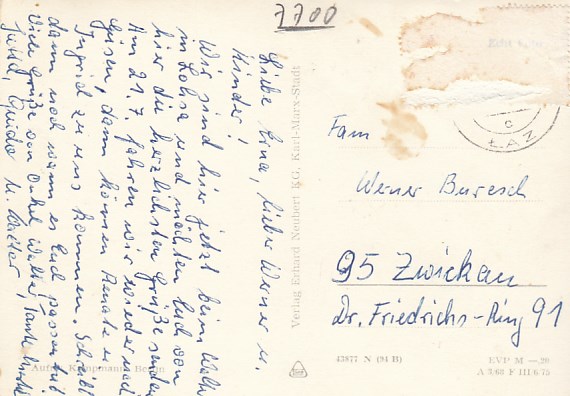 7700
Liebe Erna, lieber Werner u.
Kinder!
Wir sind hier jetzt beim
in Lohsa und möchten Euch von
hier die herzlichsten Grüße senden
Am 21.7 fahren wir wieder nach
dann können Renate u
Ingrid zu uns kommen. Schreibt
dann noch wann es Euch passen tut
Viele Grüße von Onkel Walter, Tante
Jutta, Guido u. Walter
Aufn. Kampmann, Berlin
Verlag Erhard Neubert KG, Karl-Marx-Stadt
ŁAZ
c
Fam
Werner Buresch
95 Zwickau
Dr. Friedrichs-Ring 91
43877 N (94 B)
EVP M —.20
A 3/68 F III 6 75